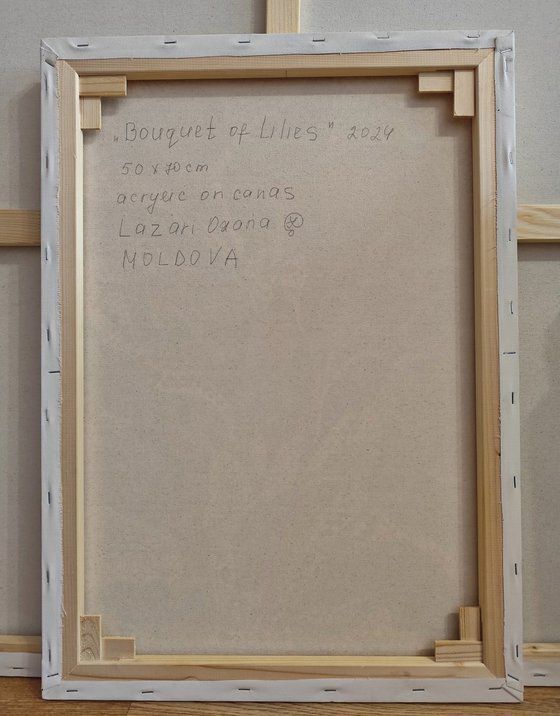 „Bouquet of Lilies" 2024
50 x 70 cm
acrylic on canas
Lazari Oxana
MOLDOVA